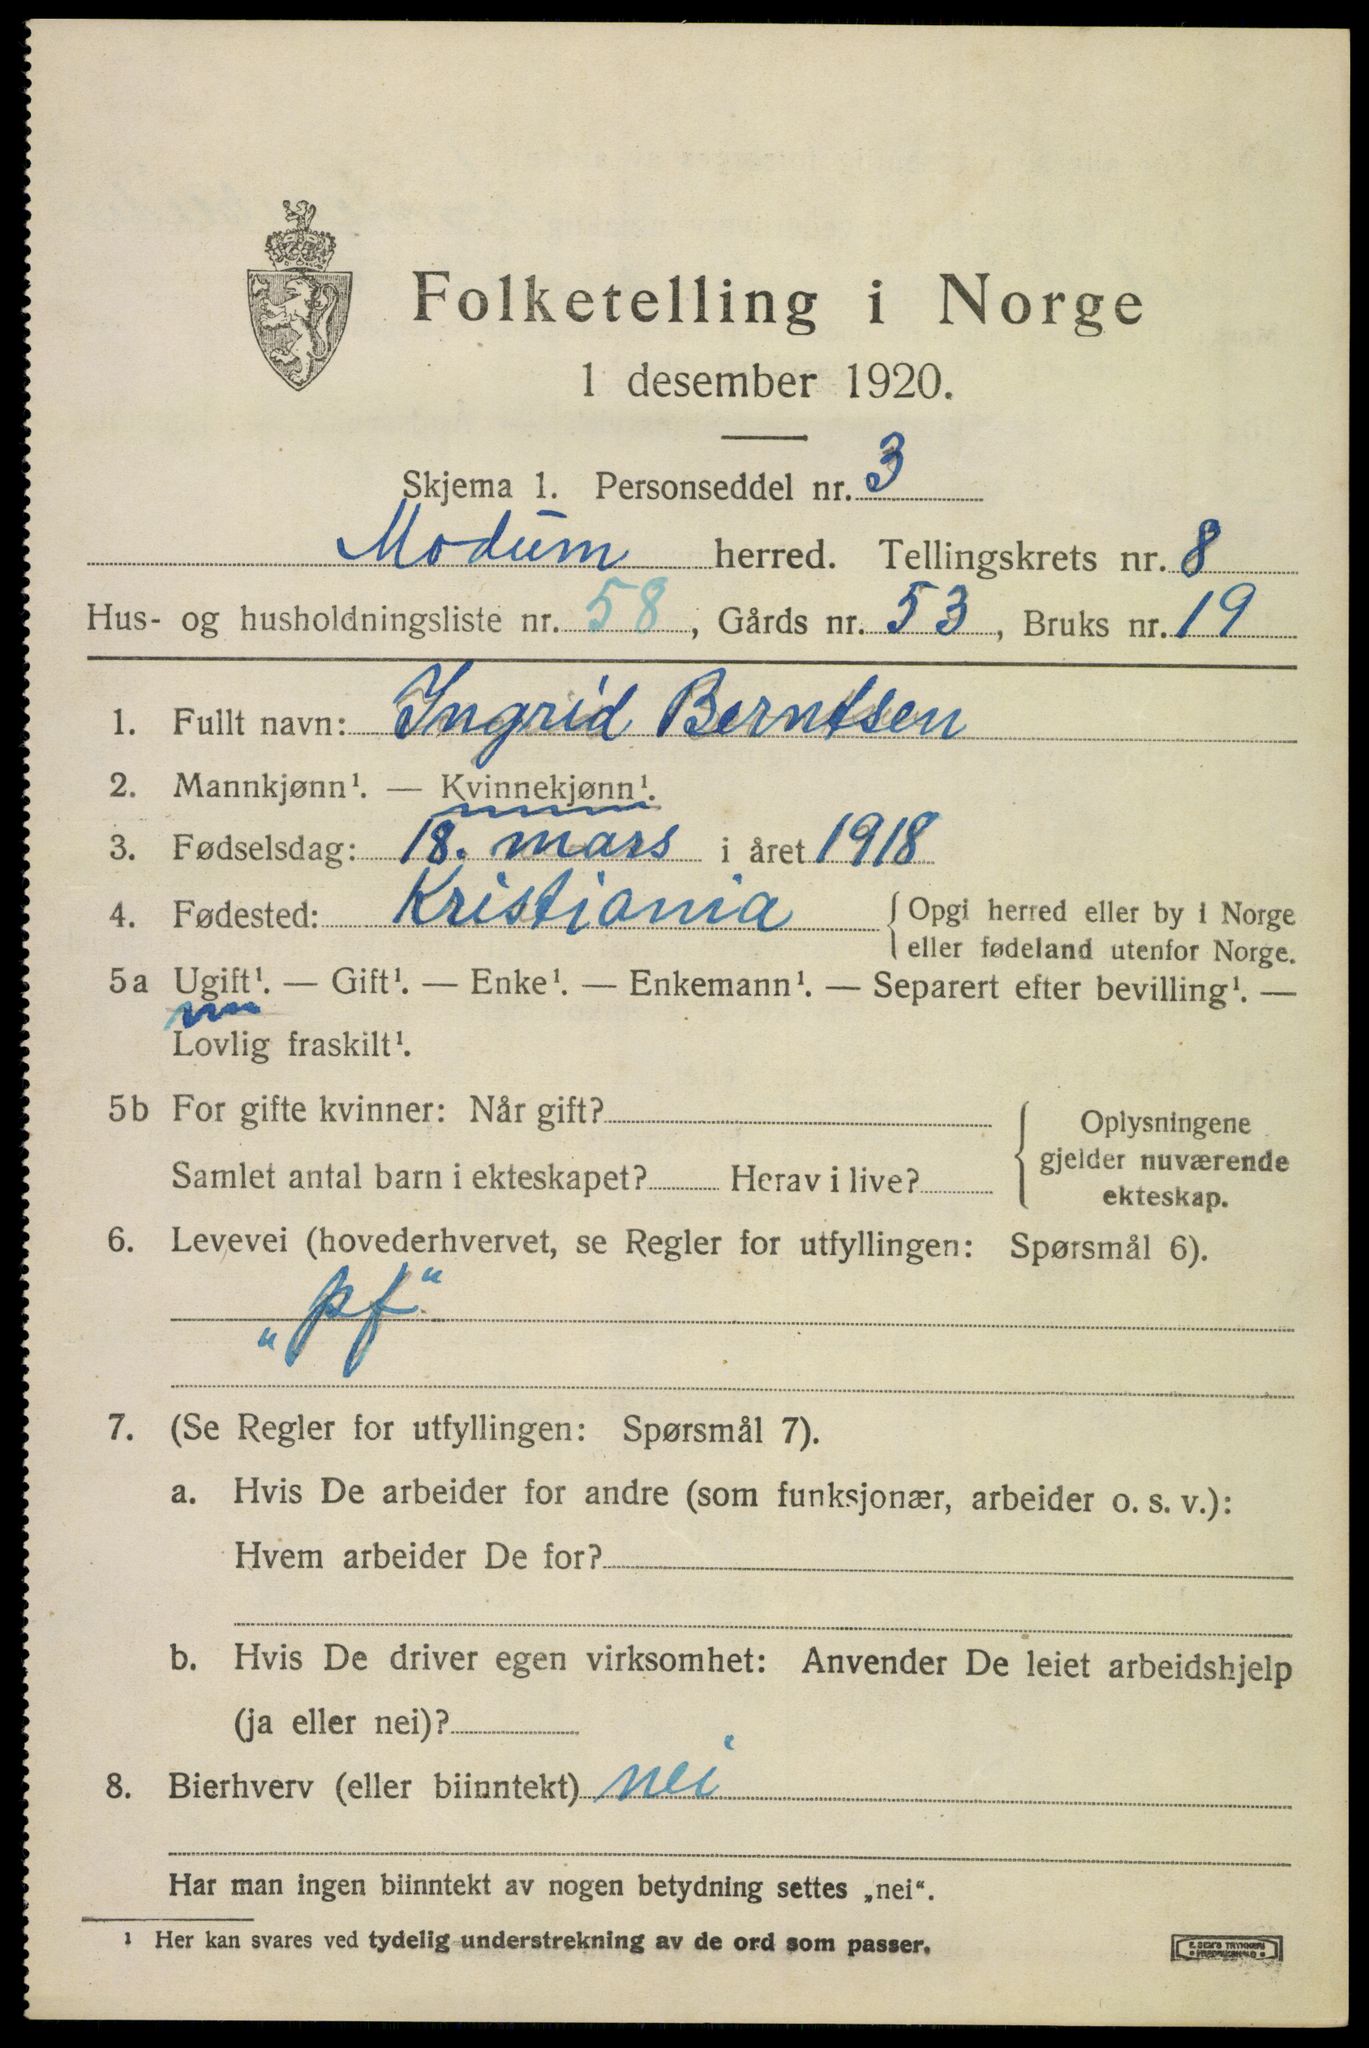 Folketelling i Norge
1 desember 1920.
Skjema 1. Personseddel nr. 3
Modum herred. Tellingskrets nr. 8
Hus- og husholdningsliste nr. 58, Gårds nr. 53, Bruks nr. 19
1. Fullt navn: Ingrid Berntsen
2. Mannkjønn¹. — Kvinnekjønn¹.
3. Fødselsdag: 18. mars i året 1918
4. Fødested: Kristiania { Opgi herred eller by i Norge
eller fødeland utenfor Norge.
5a Ugift¹. — Gift¹. — Enke¹. — Enkemann¹. — Separert efter bevilling¹. —
Lovlig fraskilt¹.
5b For gifte kvinner: Når gift?
Samlet antal barn i ekteskapet? Herav i live?
{ Oplysningene
gjelder nuværende
ekteskap.
6. Levevei (hovederhvervet, se Regler for utfyllingen: Spørsmål 6).
„pf“
7. (Se Regler for utfyllingen: Spørsmål 7).
a. Hvis De arbeider for andre (som funksjonær, arbeider o. s. v.):
Hvem arbeider De for?
b. Hvis De driver egen virksomhet: Anvender De leiet arbeidshjelp
(ja eller nei)?
8. Bierhverv (eller biinntekt) nei
Har man ingen biinntekt av nogen betydning settes „nei“.
¹ Her kan svares ved tydelig understrekning av de ord som passer.